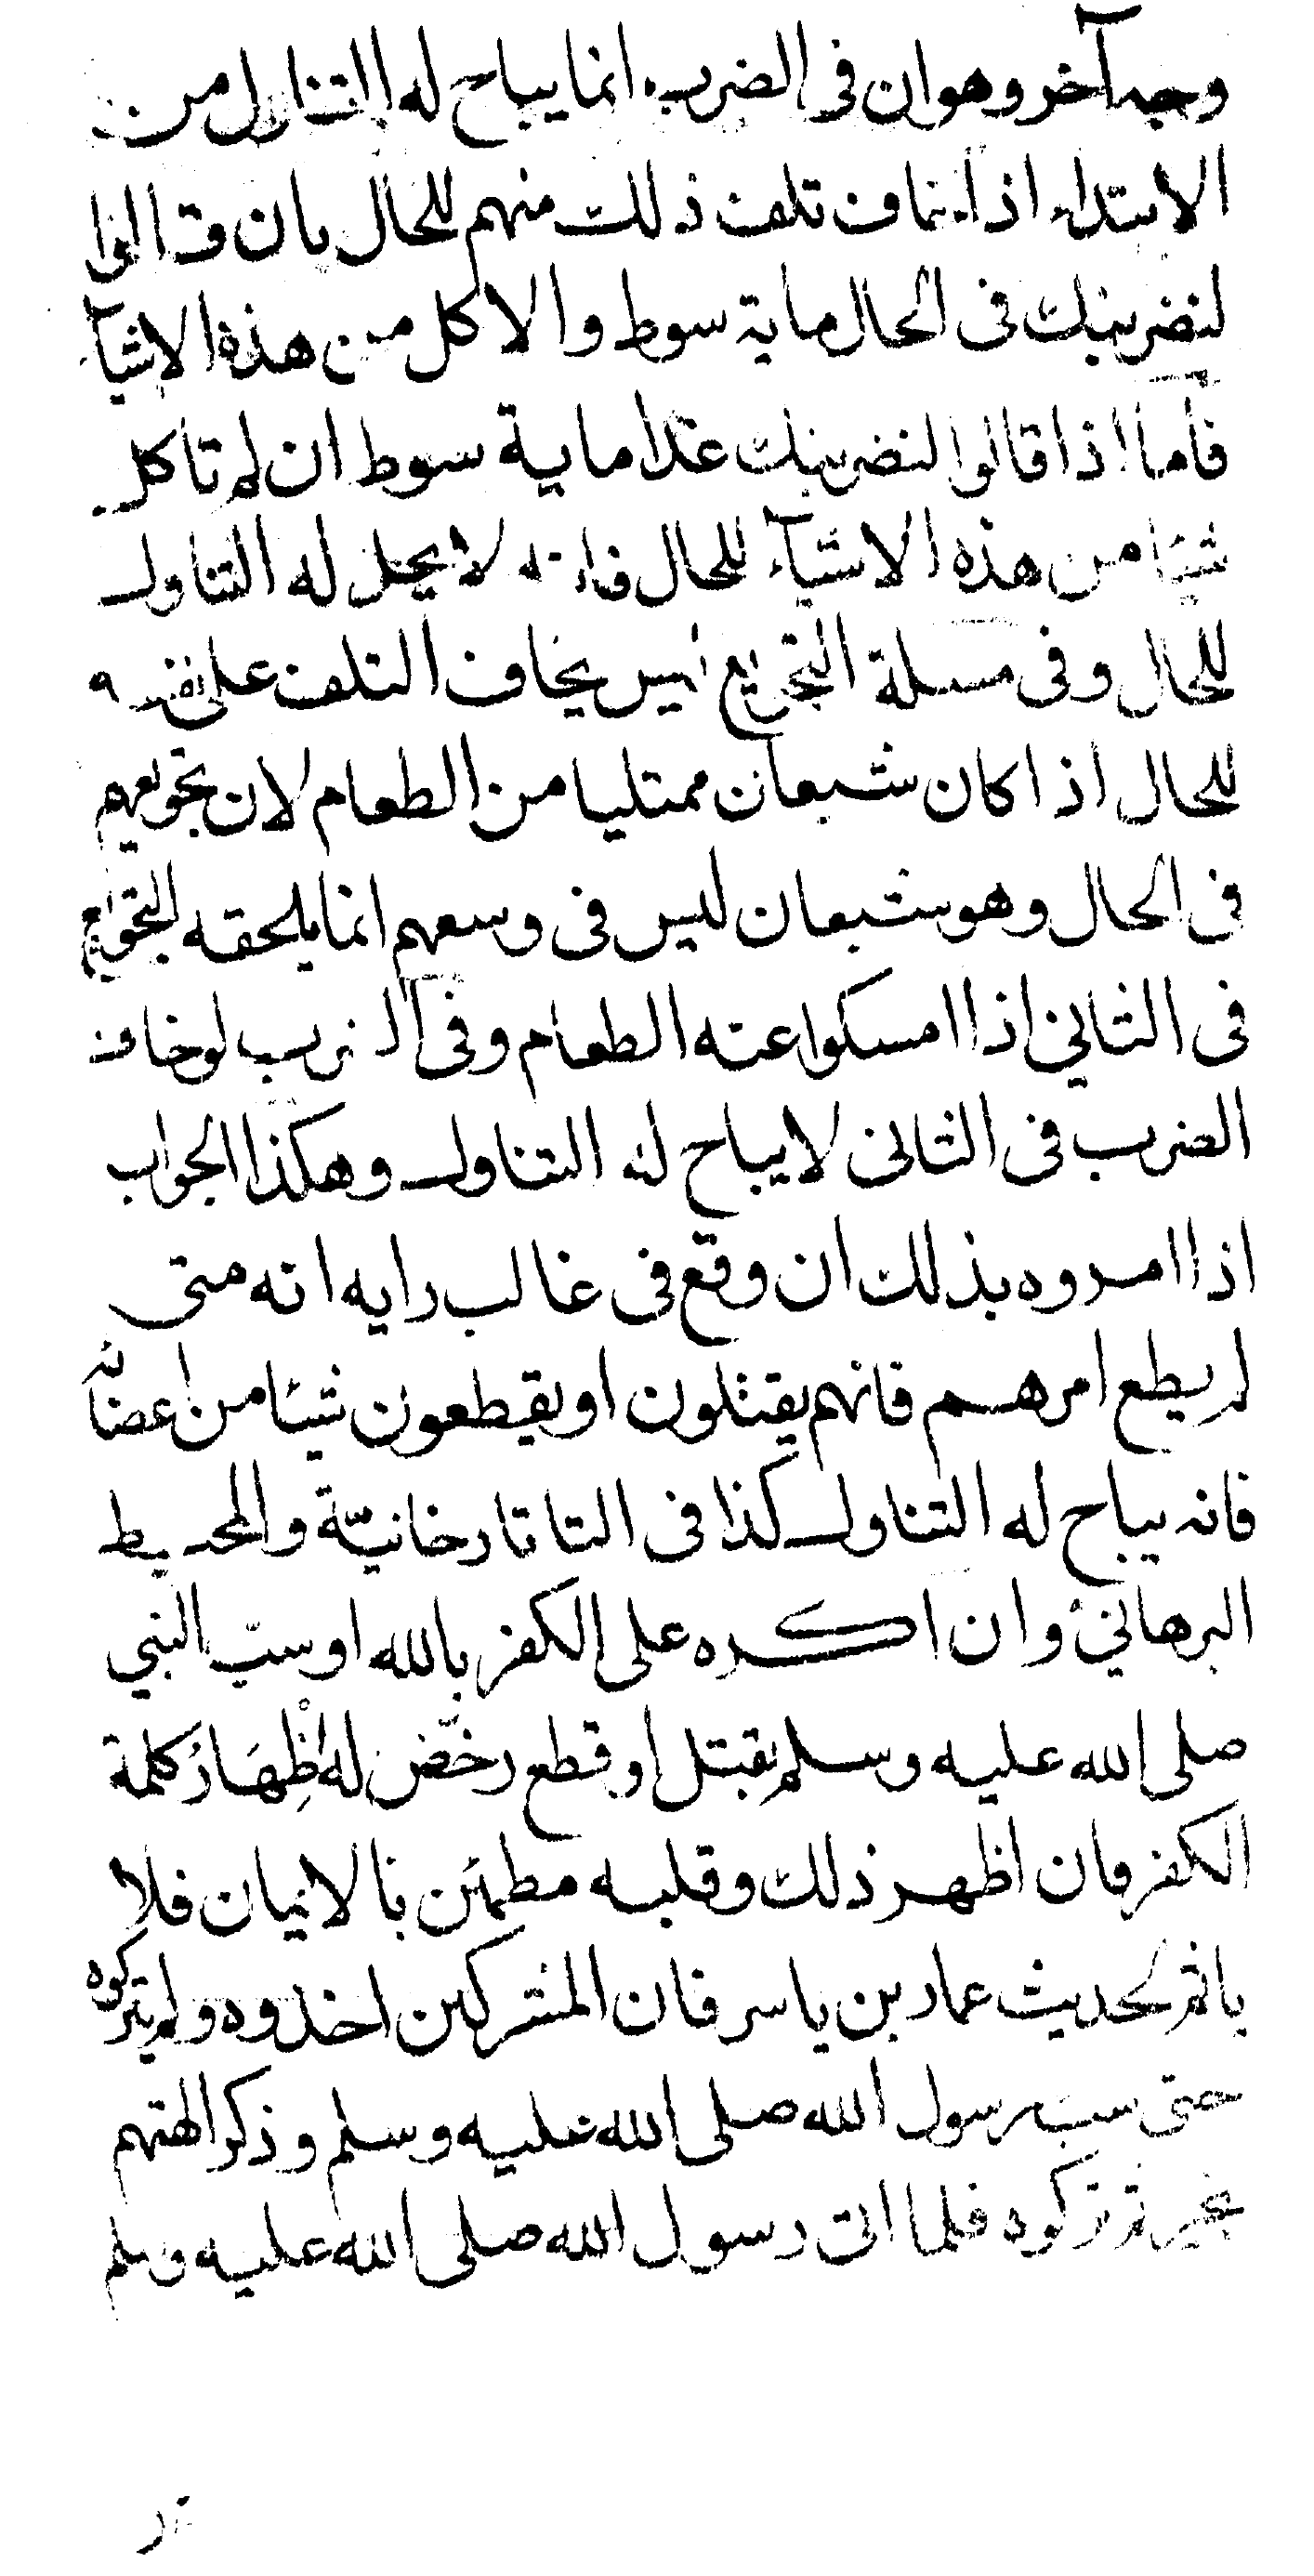 وجه آخر وهو ان فى الضرب انما يباح له التناول من
الابتداء اذا خاف تلف ذلك منهم للحال بان قالوا
لنضربنك فى الحال ماية سوط والا كل من هذه الاشيآء
فاما اذا قالوا لنضربنك غدا ماية سوط ان لم تاكل
شيئا من هذه الاشيآء للحال فانه لا يحل له التناول
للحال وفى مسلة التجويع ليس يخاف التلف على نفسه
للحال اذا كان شبعان ممتليا من الطعام لان تجويعهم
فى الحال وهو شبعان ليس فى وسعهم انما يلحقه التجويع
فى الثاني اذا امسكوا عنه الطعام وفى الضرب لو خاف
الضرب فى الثانى لا يباح له التناول وهكذا الجواب
اذا امروه بذلك ان وقع فى غالب رايه انه متى
لم يطع امرهم فانهم يقتلون او يقطعون شيئا من اعضائه
فانه يباح له التناول كذا فى التاتارخانيّة والمحيط
البرهاني وان اكره على الكفر بالله او سبّ النبي
صلى الله عليه وسلم بقتل او قطع رخّص له اظِهَارُ كلمة
الكفر فان اظهر ذلك وقلبه مطمئن بالايمان فلا
ياثم لحديث عمار بن ياسر فان المشركين اخذوه ولم يتركوه
حتى سب رسول الله صلى الله عليه وسلم وذكر الهتهم
بخير ثم تركوه فلما اتى رسول الله صلى الله عليه وسلم